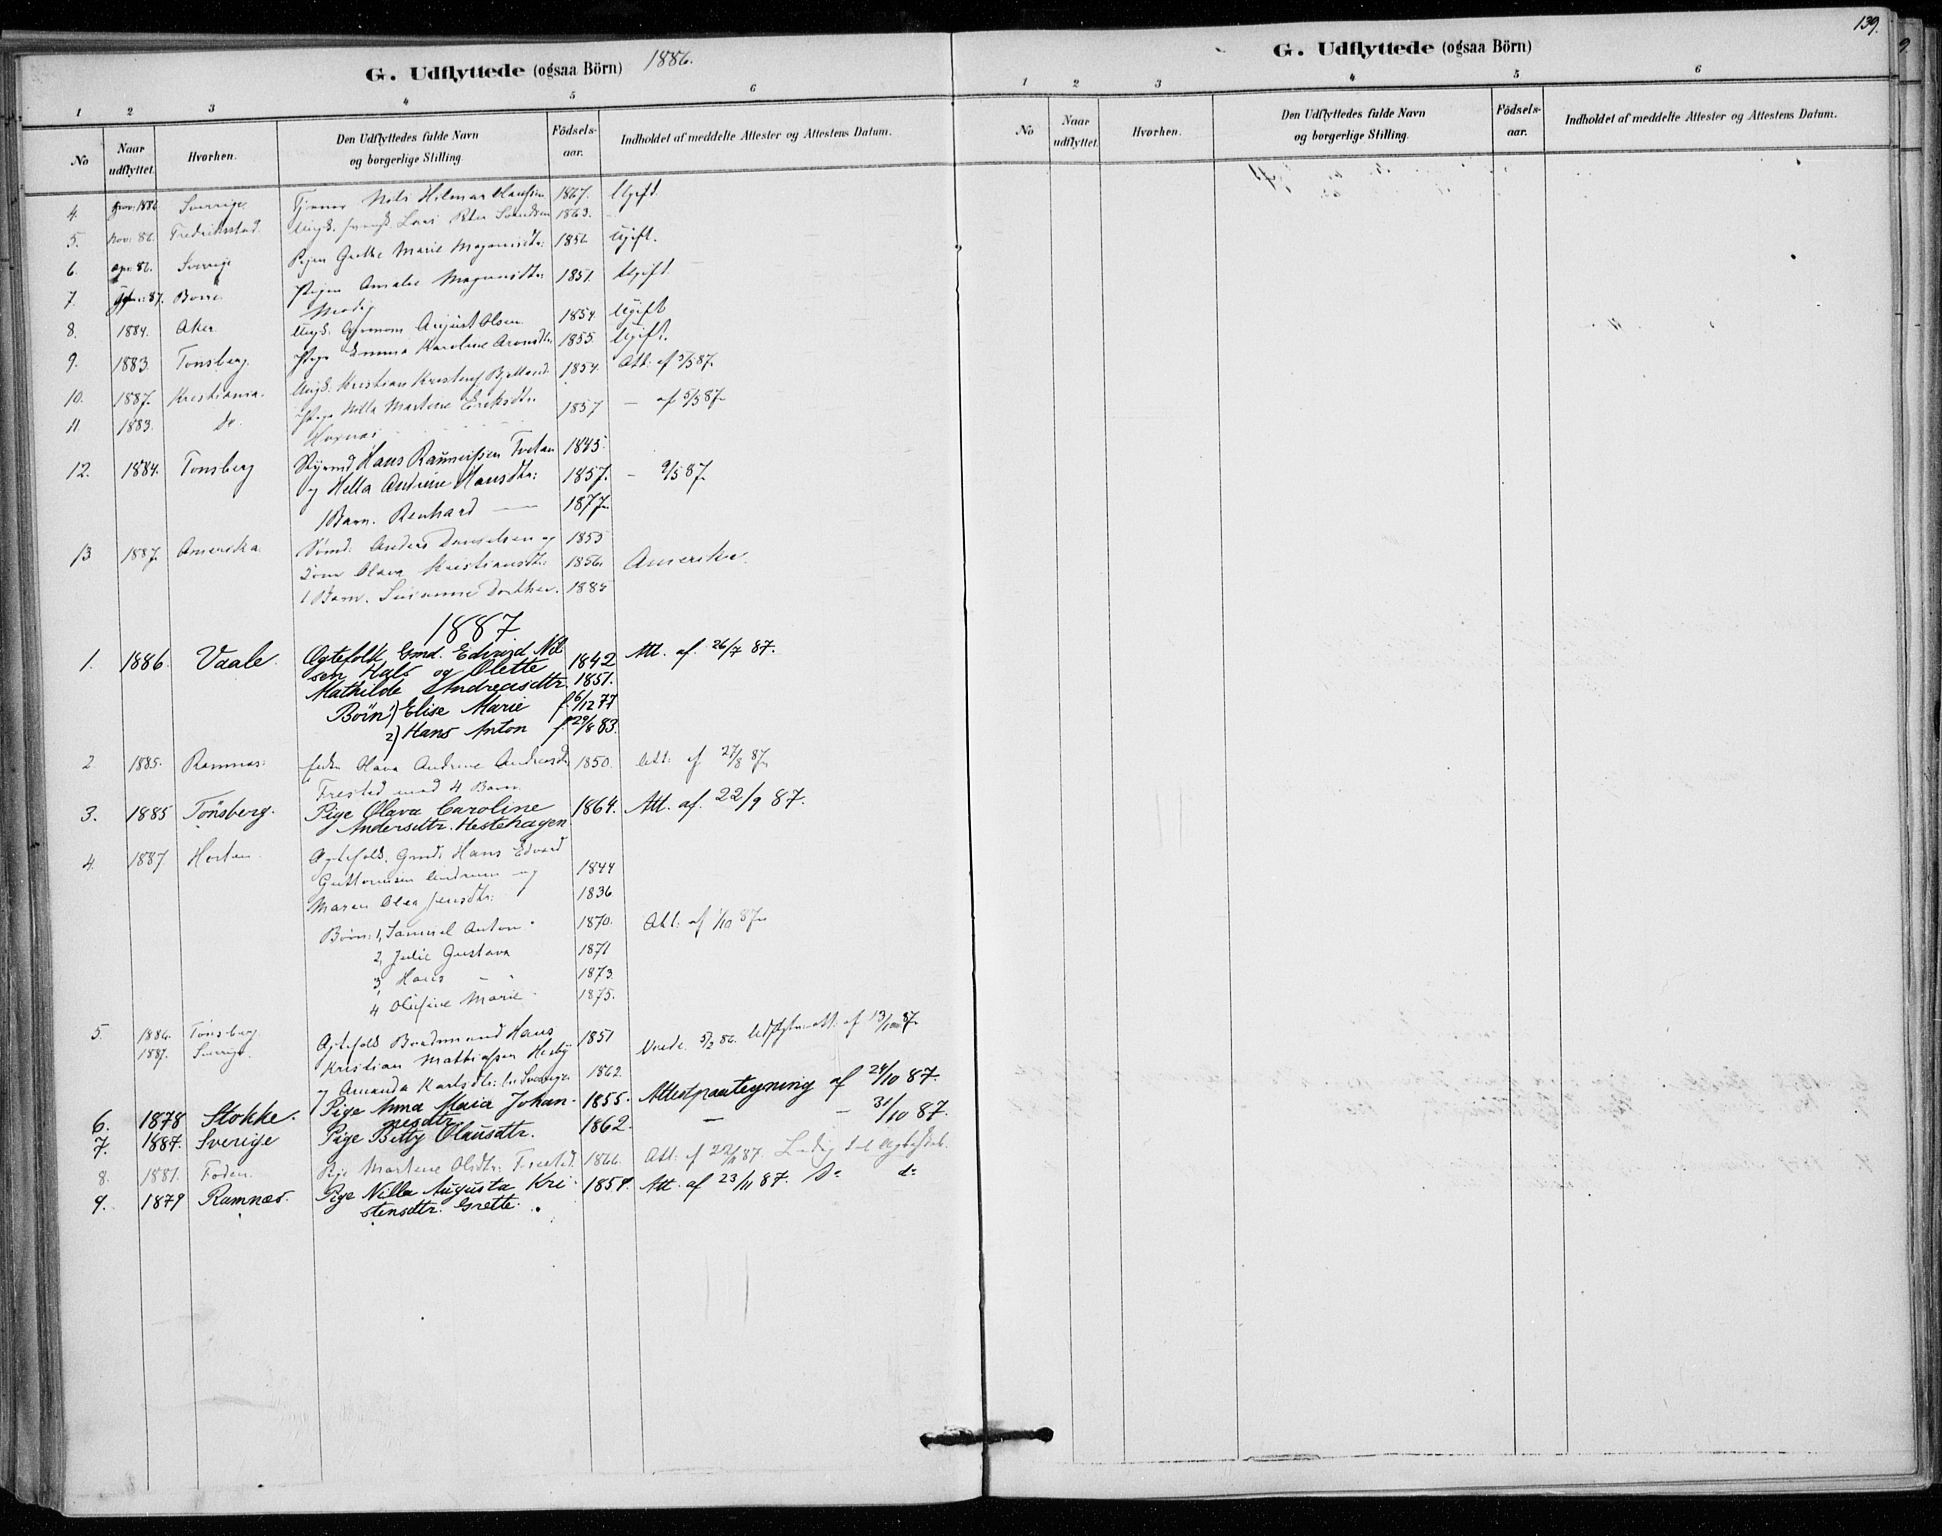 G. Udflyttede (ogsaa Börn) 1886.
1 2 3 4 5 6
No Naar udflyttet. Hvorhen. Den Udflyttedes fulde Navn og borgerlige Stilling. Födsels-aar. Indholdet af meddelte Attester og Attestens Datum.
4. 1886 Sverrige Nils Hilmar Hansen 1867. Ugift.
5. Nov: 86. Fredriksstad. Ungk. Lars Peter 1863.
6. 86. Sverige Pigen Grethe Marie 1856 Ugift.
7. 87. Borre Pigen Amalie 1851. Ugift
8. 1884. Aker Ungk. August Olsen 1854 Ugift
9. 1883. Tonsberg. Pige Emma Karoline 1855 Ugift.
10. 1887. Kristiania. Ungk. Kristian 1854. Att: af 3/5 87.
11. 1883. Do. Pige Nilla Martine Eriksdtr. 1857 — af 5/5 87
12. 1884. Tonsberg Styrmd. Hans Tvetan 1845.
og Hella Andrine Hansdtr: 1857. — 9/5 87.
1 Barn. Renhard — 1877
13 1887. Amerika Sømd: Anders Danielsen og 1855
Olava Kristiansdtr: 1856 Amerika.
1 Barn. Susanne Dorthea. 188
1887
1. 1886. Vaale. Ægtefolk Gmd. Edvard Nil
sen Hals og Olette 1842 Att. af. 26/7 87.
Mathilde Andreasdtr. 1851.
Börn 1) Elise Marie f. 6/12 77
2) Hans Anton f. 29/8 83.
2 1885. Ramnæs. Olava Andrine 1850. Att: af 27/8 87
Frestad med 4 Barn.
3. 1885 Tönsberg. Pige Olava Caroline 1864. Att. af. 22/9 87.
Andersdtr. Hestehagen
4. 1887 Horten Ægtefolk. Gmd: Hans Edvard
Guttormsen og 1844
Maren Olea Jensdtr: 1836
Börn: 1, Samuel Anton 1870. Att: af 1/10 87
2, Julie Gustava 1871
3, Hans 1873.
4 Olufine Marie 1875.
5. 1886. Tönsberg Ægtefolk Hans 1851
1887. Sverige. Kristian Mathiassen 5/2 86. att: af 13/10 87
og Amanda Karlsdtr: 1862
6. 1878 Stokke. Pige Anna Maria Johan- 1855. Attestpaategning af 24/10 87.
nesdtr.
7. 1887. Sverige Pige Betty Olausdtr. 1862. — — 31/10 87.
8. 1881. Foden. Pige Martine Olsdtr: Frestad. 1866. Att: af 22/11 87. Ledig til Ægteskab.
9. 1879 Ramnæs. Pige Nille Augusta Kri- 1854. Att. af 23/11 87. Do do
stensdtr. Grette.
139.
G. Udflyttede (ogsaa Börn)
1 2 3 4 5 6
No Naar udflyttet. Hvorhen. Den Udflyttedes fulde Navn og borgerlige Stilling. Födsels-aar. Indholdet af meddelte Attester og Attestens Datum.